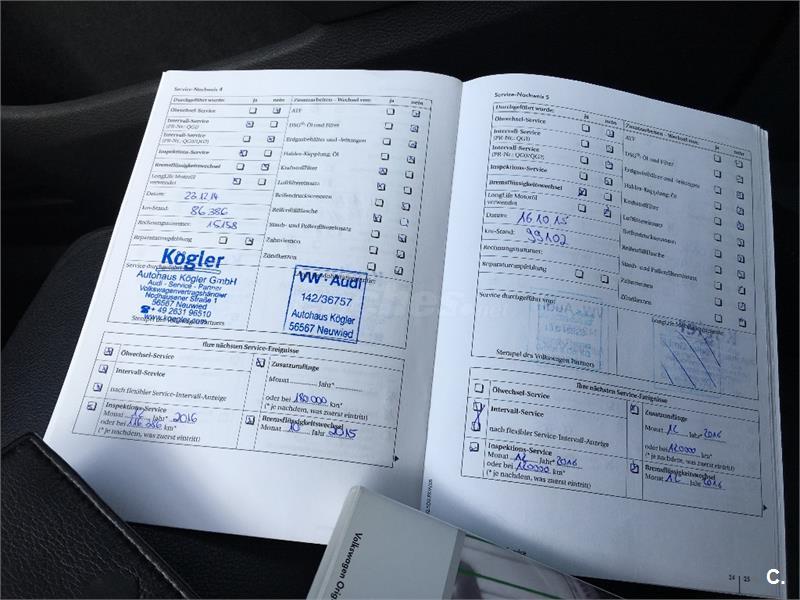 Service-Nachweis 4
Durchgeführt wurde: ja nein
Zusatzarbeiten - Wechsel von: ja nein
Ölwechsel-Service
ATF
Intervall-Service
(PR-Nr.: QG1)
DSG®: Öl und Filter
Intervall-Service
(PR-Nr.: QG0/QG2)
Erdgasbehälter und -leitungen
Inspektions-Service
Haldex-Kupplung: Öl
Bremsflüssigkeitswechsel
Kraftstofffilter
LongLife Motoröl
verwendet
Luftfiltereinsatz
Datum: 23.12.14
Beifendruckssensoren
km-Stand: 86 386
Reifenfüllflasche
Rechnungsnummer: 15158
Staub- und Pollenfiltereinsatz
Reparaturempfehlung
Zahnriemen
Zündkerzen
Kögler
Autohaus Kögler GmbH
Audi - Service - Partner
Volkswagenvertragshändler
Nodhausener Straße 1
56567 Neuwied
☎ + 49 2631 96510
www.koegler.com
VW - Audi
142/36757
Autohaus Kögler
56567 Neuwied
Ihre nächsten Service-Ereignisse
Ölwechsel-Service
Intervall-Service
nach flexibler Service-Intervall-Anzeige
Inspektions-Service
Monat 12 Jahr* 2016
oder bei 116 386 km*
(* je nachdem, was zuerst eintritt)
Zusatzaufträge
Monat Jahr*
oder bei 180 000 km*
(* je nachdem, was zuerst eintritt)
Bremsflüssigkeitswechsel
Monat 10 Jahr 2015
Service-Nachweis 5
Durchgeführt wurde: ja nein
Zusatzarbeiten - Wechsel von: ja nein
Ölwechsel-Service
ATF
Intervall-Service
(PR-Nr.: QG1)
DSG®: Öl und Filter
Intervall-Service
(PR-Nr.: QG0/QG2)
Erdgasbehälter und -leitungen
Inspektions-Service
Haldex-Kupplung: Öl
Bremsflüssigkeitswechsel
Kraftstofffilter
LongLife Motoröl
verwendet
Luftfiltereinsatz
Datum: 16 10 15
Reifendruckssensoren
km-Stand: 99102
Reifenfüllflasche
Rechnungsnummer:
Staub- und Pollenfiltereinsatz
Reparaturempfehlung
Zahnriemen
Zündkerzen
Service durchgeführt von:
VW-Audi
Stempel des Volkswagen Partners
Ihre nächsten Service-Ereignisse
Ölwechsel-Service
Intervall-Service
nach flexibler Service-Intervall-Anzeige
Inspektions-Service
Monat 12 Jahr* 2016
oder bei 120000 km*
(* je nachdem, was zuerst eintritt)
Zusatzaufträge
Monat 12 Jahr 2016
oder bei 120000 km*
(* je nachdem, was zuerst eintritt)
Bremsflüssigkeitswechsel
Monat 12 Jahr 2016
24 | 25
Volkswagen Orig
C.